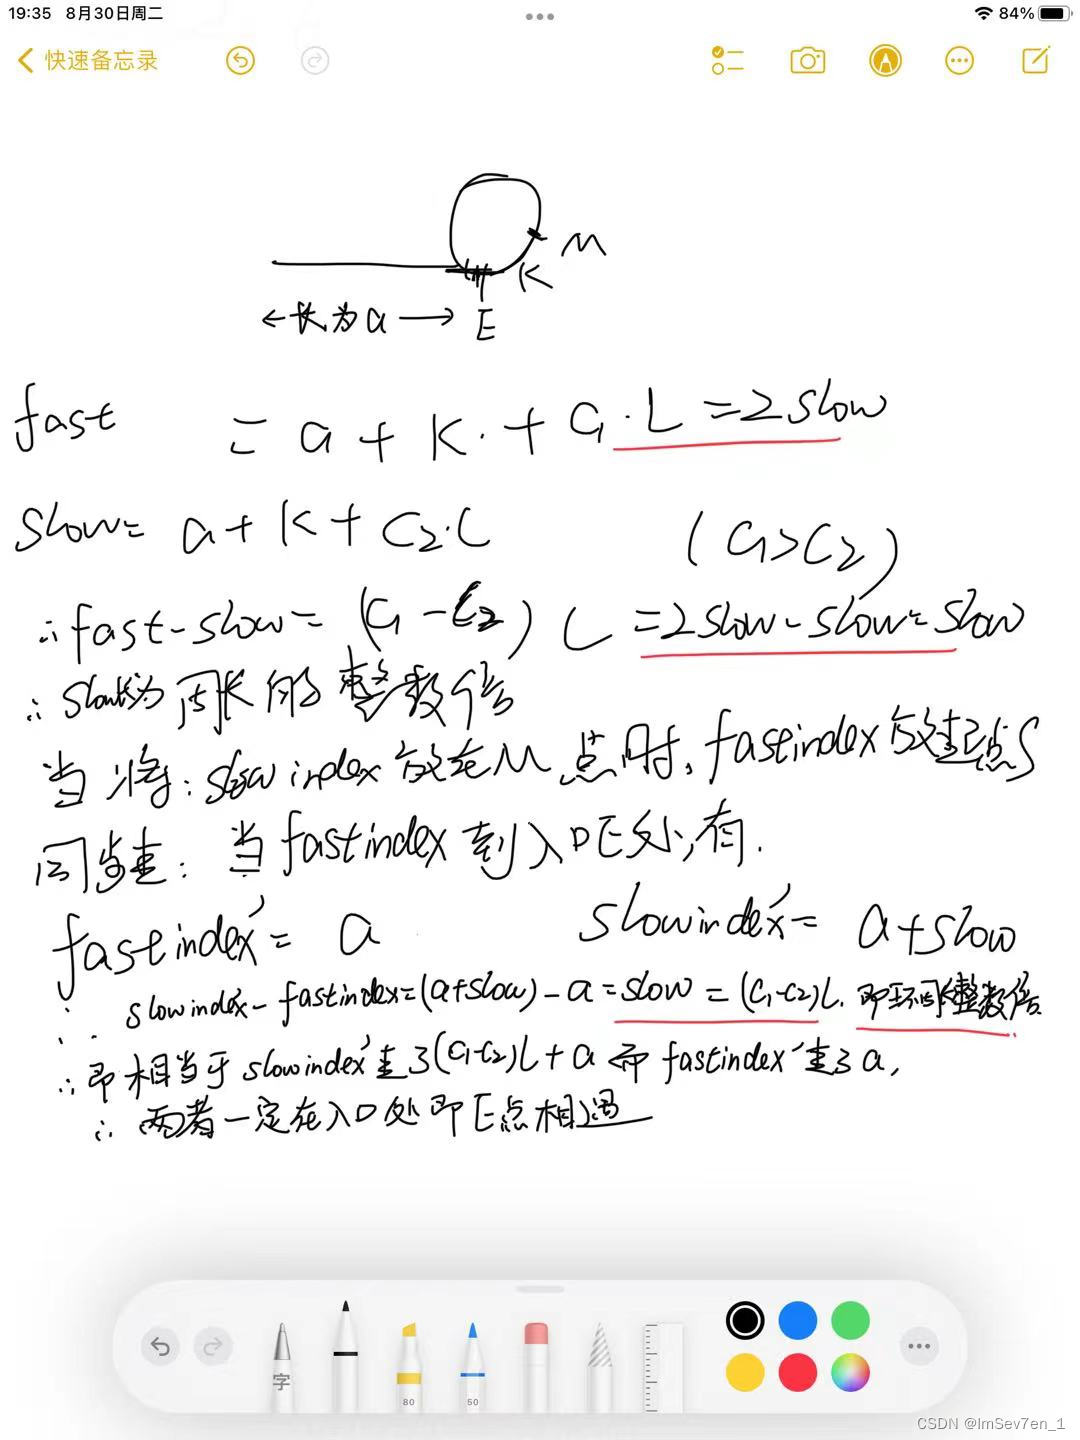 19:35 8月30日周二
84%
快速备忘录
M
K
←长为a→ E
fast = a + K + C₁·L = 2slow
slow = a + K + C₂·L (C₁>C₂)
∴fast-slow = (C₁-C₂)L = 2slow-slow=slow
∴slow长为周长的整数倍
当将:slowindex放在M点时,fastindex放起点S
同步走:当fastindex到入口E处,有.
fastindex'= a slowindex'= a+slow
∴ slowindex'-fastindex=(a+slow)-a=slow=(C₁-C₂)L.即环周长整数倍.
∴即相当于slowindex'走了(C₁-C₂)L+a而fastindex'走了a,
∴两者一定在入口处即E点相遇
字
80
50
CSDN @ImSev7en_1